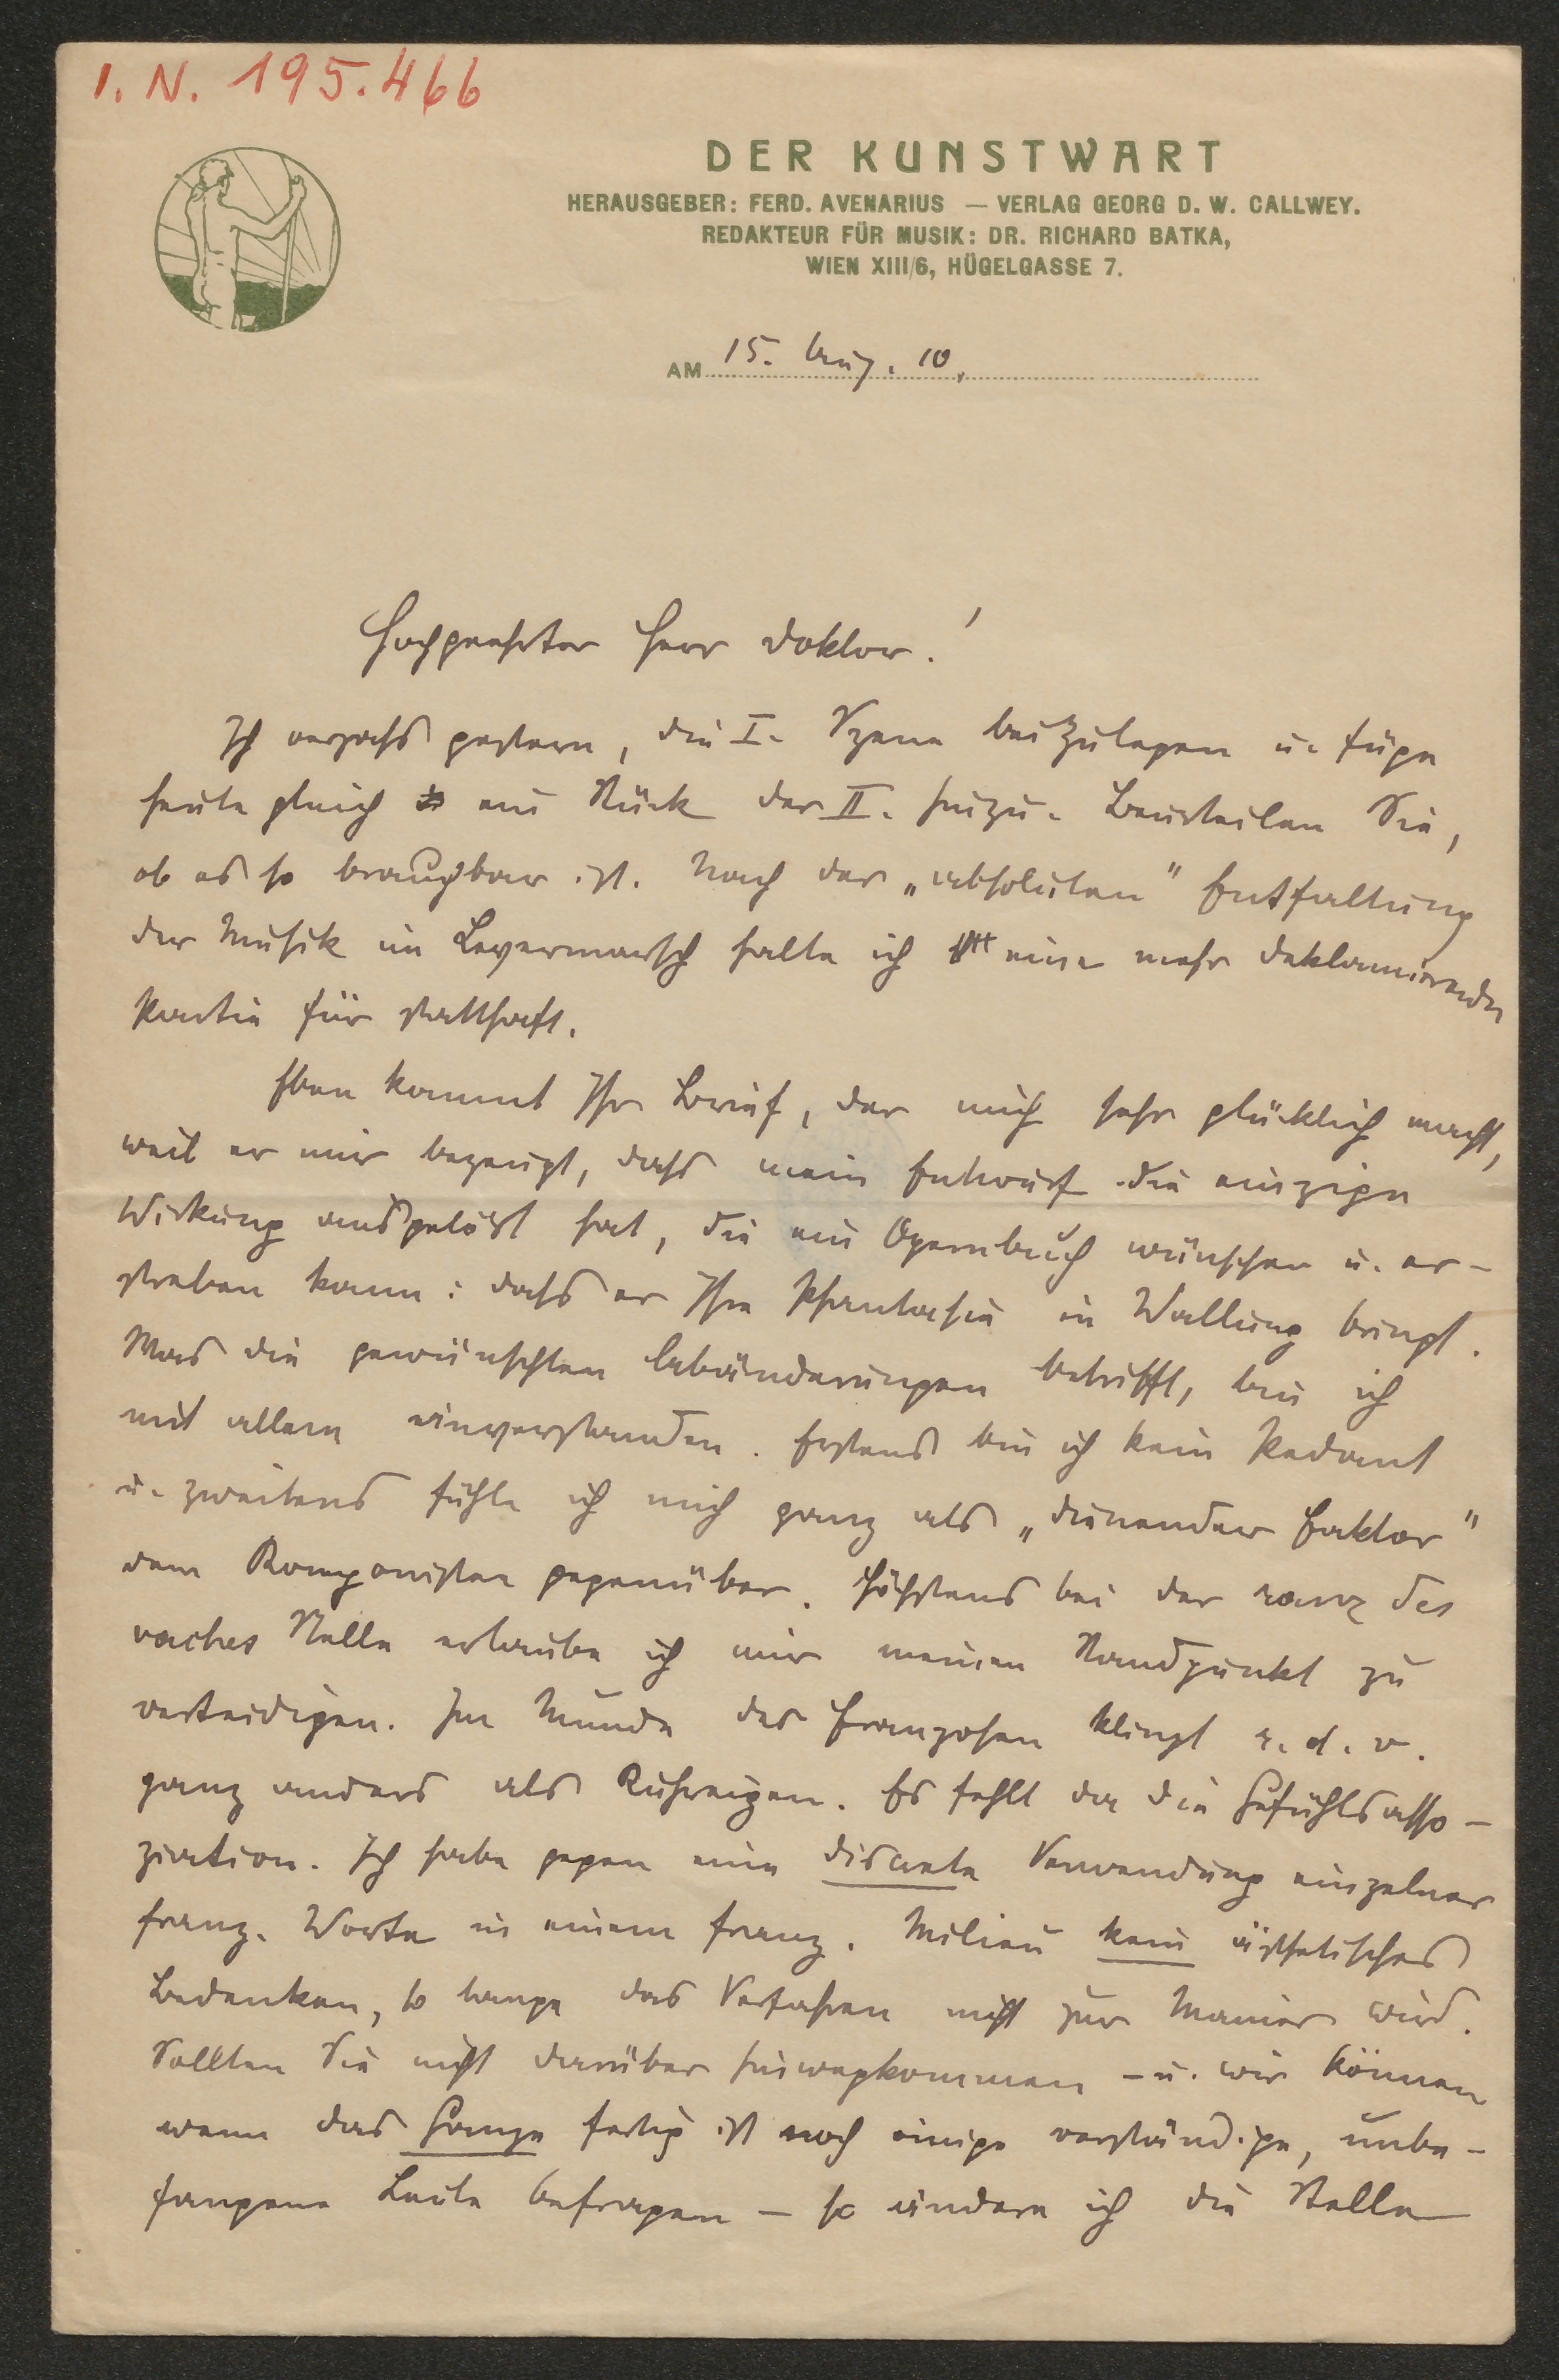 I. N. 195.466
DER KUNSTWART
HERAUSGEBER: FERD. AVENARIUS — VERLAG GEORG D. W. CALLWEY.
REDAKTEUR FÜR MUSIK: DR. RICHARD BATKA,
WIEN XIII/6, HÜGELGASSE 7.
AM 15. Aug. 10.
Hochgeehrter Herr Doktor!
Ich vergaß gestern, die I. Szene beizulegen u. füge
heute gleich ein Stück der II. hinzu. Beurteilen Sie,
ob es so brauchbar ist. Nach der „absoluten" Entfaltung
der Musik im Layermarsch halte ich eine mehr deklamierende
Partie für statthaft.
Eben kommt Ihr Brief, der mich sehr glücklich macht,
weil er mir bezeugt, daß mein Entwurf die einzige
Wirkung ausgelöst hat, die ein Opernbuch wünschen u. er-
streben kann: daß er Ihre Phantasie in Wallung bringt.
Was die gewünschten Abänderungen betrifft, bin ich
mit allem einverstanden. Erstens bin ich kein Pedant
u. zweitens fühle ich mich ganz als „dienender Faktor"
dem Komponisten gegenüber. Höchstens bei der ranz des
vaches Stelle erlaube ich mir meinen Standpunkt zu
verteidigen. Im Munde des Franzosen klingt r. d. v.
ganz anders als Kuhreigen. Es fehlt da die Gefühlsasso-
ziation. Ich habe gegen eine discrete Verwendung einzelner
franz. Worte in einem franz. Milieu kein ästhetisches
Bedenken, so lange das Verfahren nicht zur Manier wird.
Sollten Sie nicht darüber hinwegkommen – u. wir können
wenn das Ganze fertig ist noch einige verständige, unbe-
fangene Leute befragen – so ändere ich die Stelle